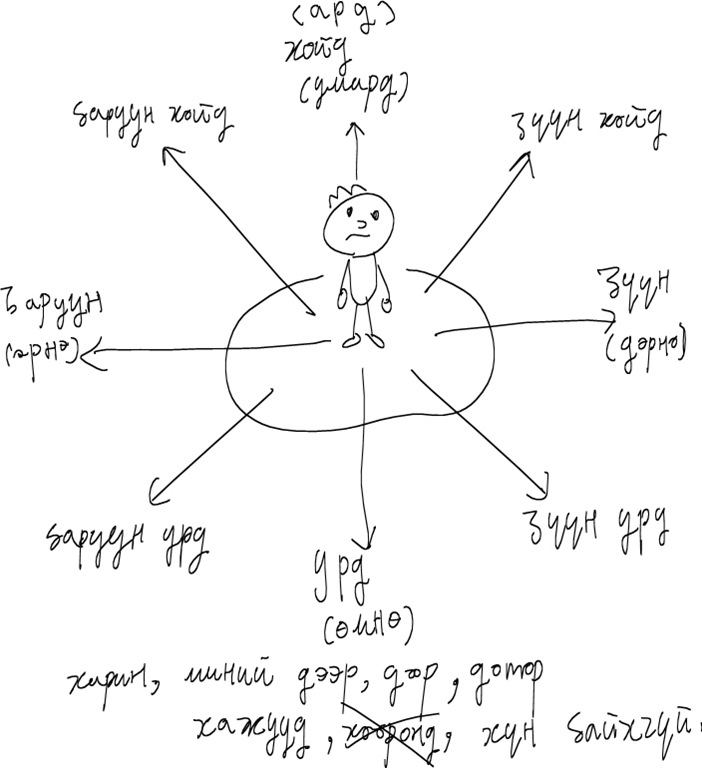 (ард)
хойд
(умард)
баруун хойд
зүүн хойд
баруун
(өрнө)
зүүн
(дорно)
баруун урд
зүүн урд
урд
(өмнө)
харин, миний дээр, дор, дотор
хажууд, хооронд, хүн байхгүй.